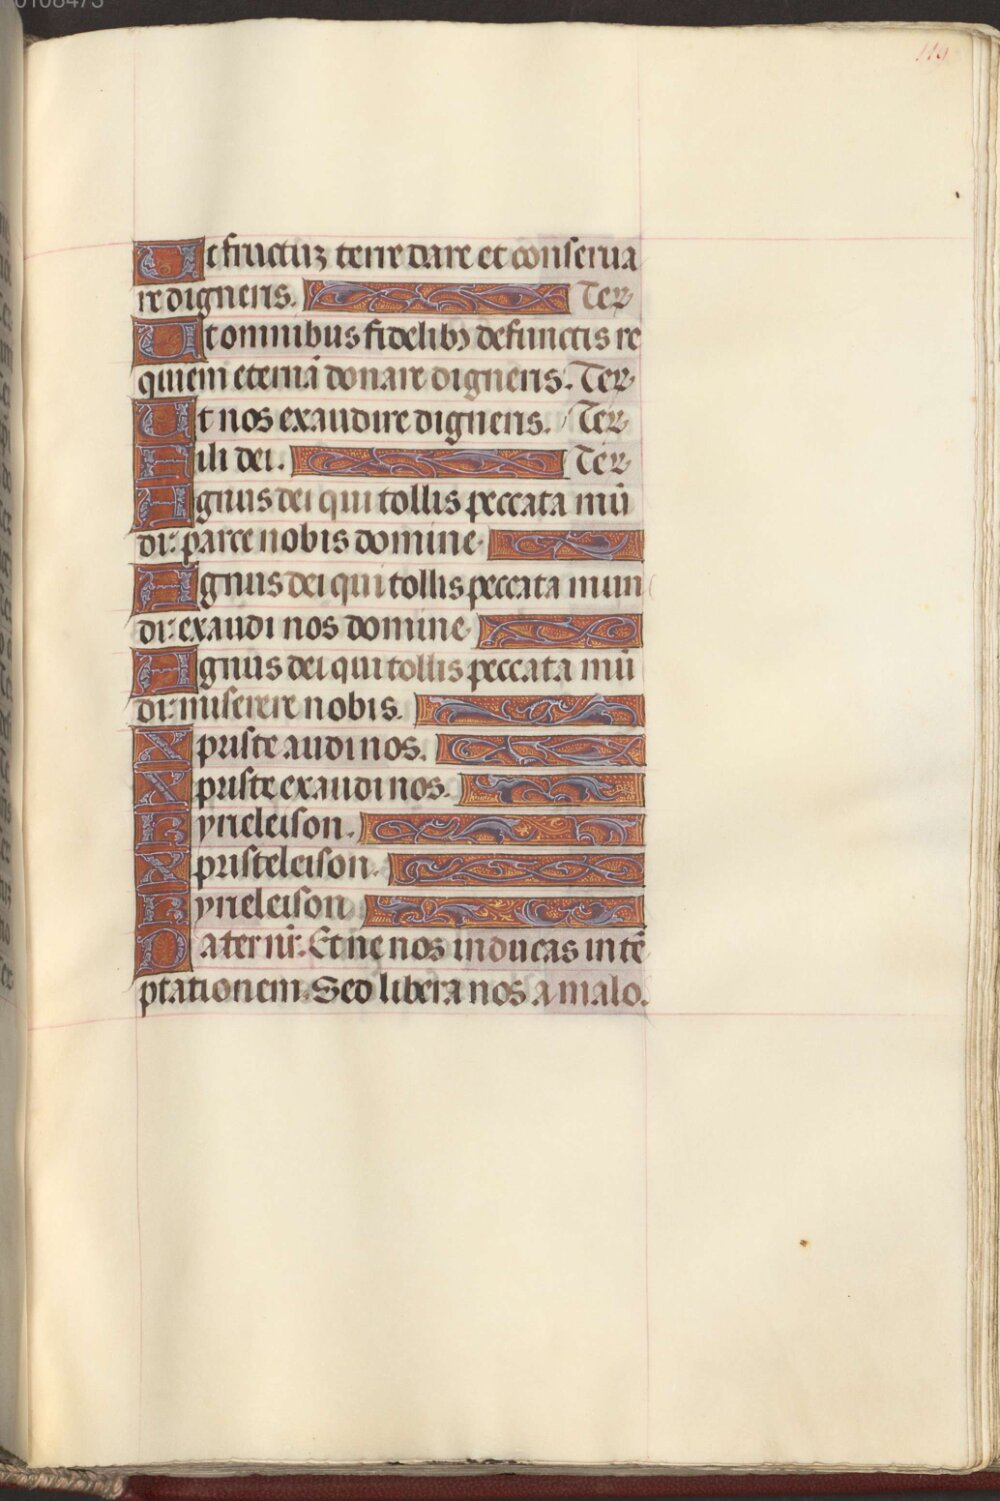 119
Ut fructuʒ terre dare et conserua
re digneris. Ter
Ut omnibus fidelibꝫ defunctis re
quiem eternā donare digneris. Ter
Ut nos exaudire digneris. Ter
Fili dei. Ter
Agnus dei qui tollis peccata mū
di: parce nobis domine
Agnus dei qui tollis peccata mun
di: exaudi nos domine
Agnus dei qui tollis peccata mū
di: miserere nobis.
Xpriste audi nos.
Xpriste exaudi nos.
Kyrieleison.
Xpristeleison.
Kyrieleison
Pater nr̄. Et ne nos inducas in tē
ptationem. Sed libera nos a malo.